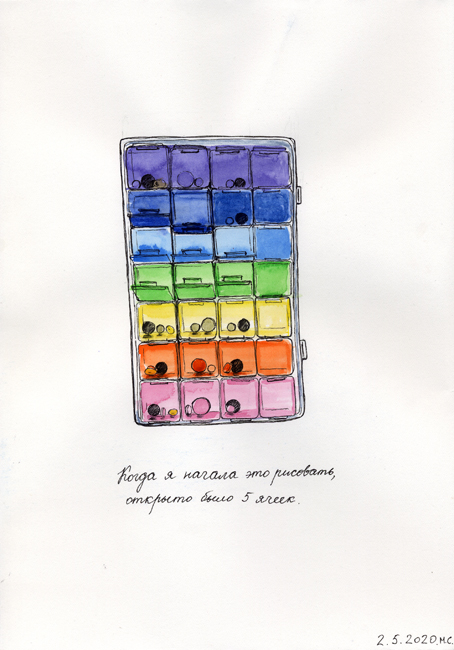 Когда я начала это рисовать,
открыто было 5 ячеек.
2.5.2020.м.с.